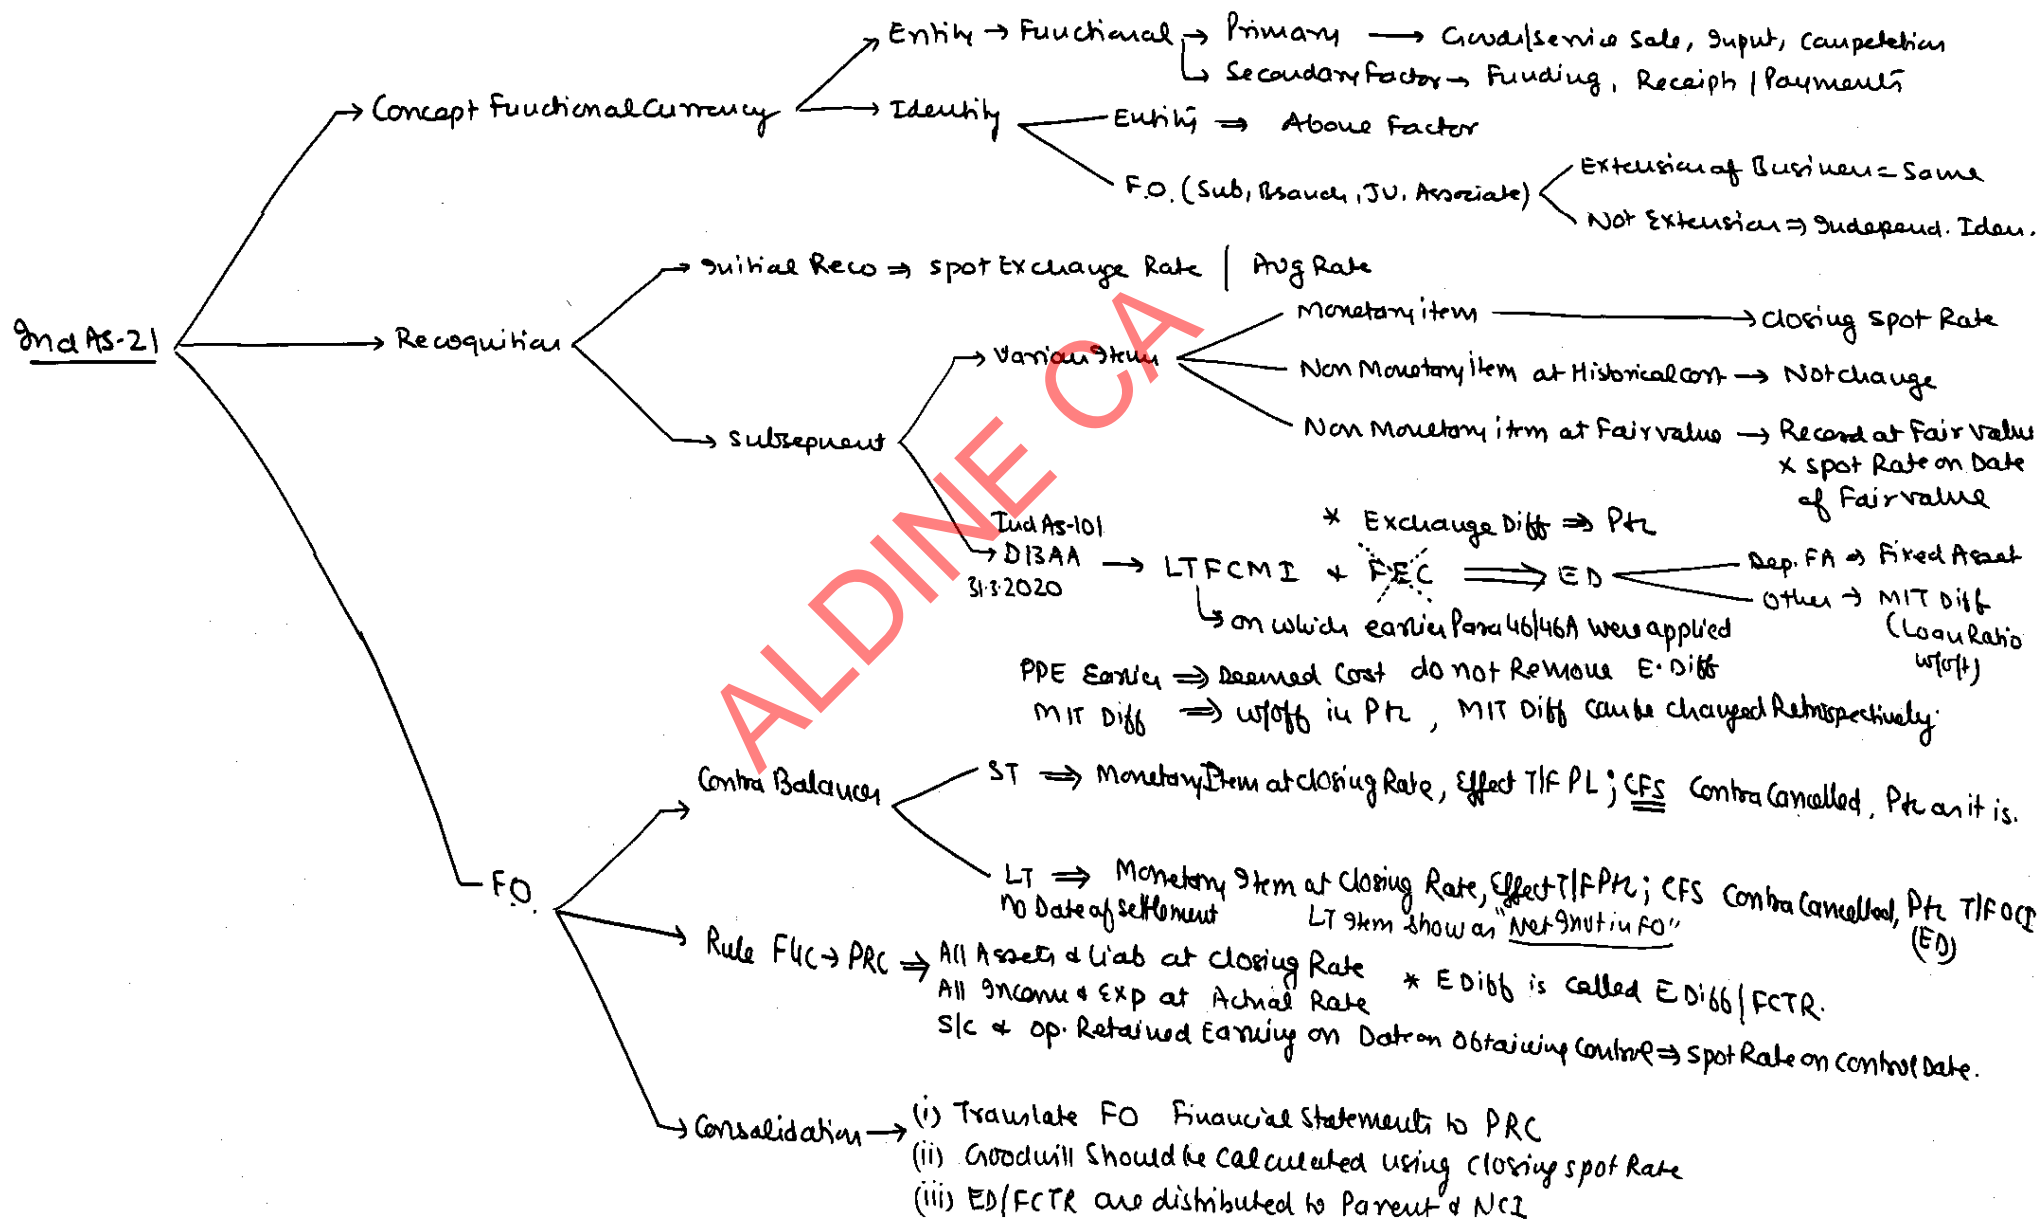 Ind AS-21
Concept Functional Currency
Entity → Functional → Primary → Goods/Service Sale, Input, Competetion
Secondary Factor → Funding, Receipts / Payments
Identity
Entity ⇒ Above Factor
F.O. (Sub, Branch, JV, Associate)
Extension of Business = Same
Not Extension ⇒ Independ. Iden.
Recognition
Initial Reco ⇒ Spot Exchange Rate | Avg Rate
Subsequent
Various Item
Monetary item → Closing Spot Rate
Non Monetary Item at Historical cost → Not change
Non Monetary item at Fair value → Record at Fair Value
x Spot Rate on Date
of Fair value
* Exchange Diff ⇒ P&L
Ind AS-101
D13AA
31.3.2020
→ LTFCMI & FEC ⇒ ED
Dep. FA ⇒ Fixed Asset
Other → MIT Diff
(Loan Ratio
w/off)
on which earlier Para 46/46A were applied
PPE Earlier ⇒ Deemed Cost do not Remove E. Diff
MIT Diff ⇒ w/off in P&L, MIT Diff can be changed Retrospectively.
F.O.
Contra Balances
ST ⇒ Monetary Item at closing Rate, Effect T/F PL; CFS Contra Cancelled, P&L as it is.
LT ⇒ Monetary Item at Closing Rate, Effect T/F P&L; CFS Contra Cancelled, P&L T/F OCI
(ED)
No Date of settlement
LT Item show as "Net Invt in FO"
Rule FUC → PRC ⇒ All Assets & Liab at closing Rate
All Income & Exp at Actual Rate
* E Diff is called E Diff/FCTR.
S/C & Op. Retained Earning on Date on Obtaining Control ⇒ Spot Rate on Control Date.
Consolidation → (i) Translate FO Financial Statements to PRC
(ii) Goodwill Should be Calculated using Closing spot Rate
(iii) ED/FCTR are distributed to Parent & NCI
ALDINE CA